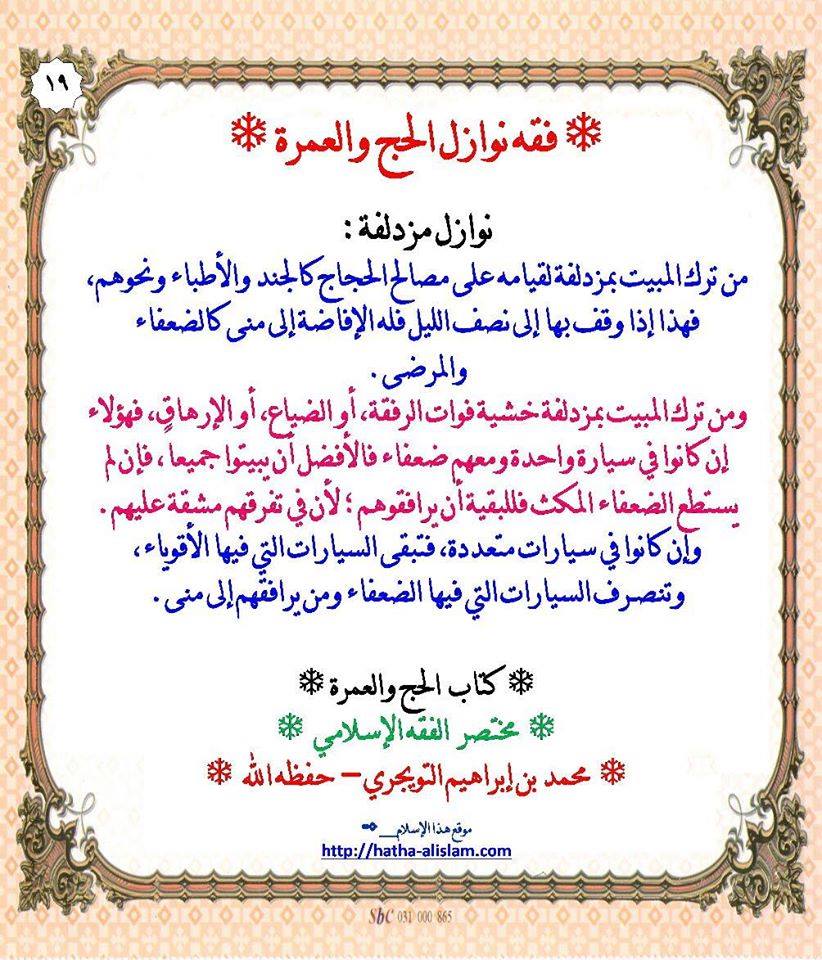 ١٩
❄ فقه نوازل الحج والعمرة ❄
نوازل مزدلفة :
من ترك المبيت بمزدلفة لقيامه على مصالح الحجاج كالجند والأطباء ونحوهم،
فهذا إذا وقف بها إلى نصف الليل فله الإفاضة إلى منى كالضعفاء
والمرضى .
ومن ترك المبيت بمزدلفة خشية فوات الرفقة، أو الضياع، أو الإرهاقِ، فهؤلاء
إن كانوا في سيارة واحدة ومعهم ضعفاء فالأفضل أن يبيتوا جميعاً، فإن لم
يستطع الضعفاء المكث فللبقية أن يرافقوهم ؛ لأن في تفرقهم مشقة عليهم .
وإن كانوا في سيارات متعددة، فتبقى السيارات التي فيها الأقوياء ،
وتنصرف السيارات التي فيها الضعفاء ومن يرافقهم إلى منى .
❄ كتاب الحج والعمرة ❄
❄ مختصر الفقه الإسلامي ❄
❄ محمد بن إبراهيم التويجري – حفظه الله ❄
موقع هذا الإسلام__
http://hatha-alislam.com
SbC 031 000 865